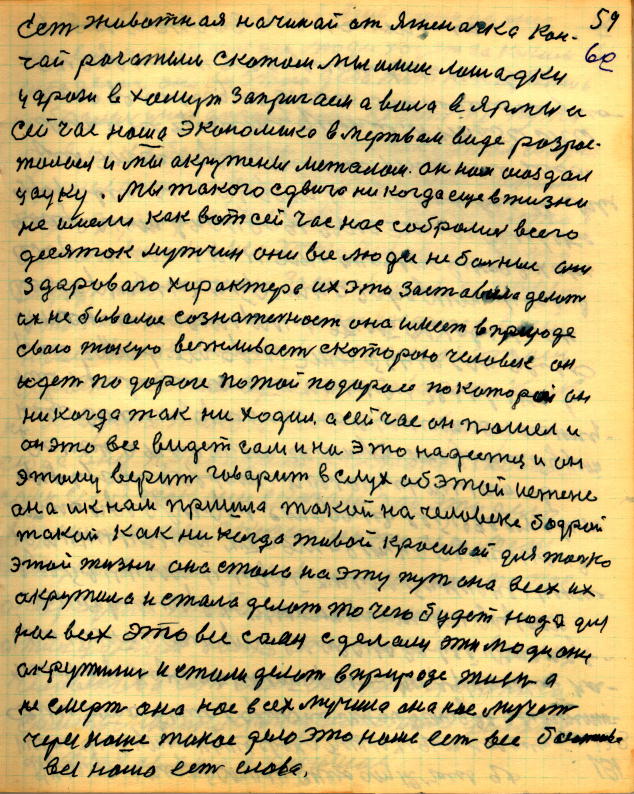 59
60
Ест животная начинай от Ягненачка кон-
чай рачатым скотом мы имеим лошадку
удрози в хомут запригаем а вола в Ярмы и
сей час наша Экономика в мертвам виде разрос-
талася и мы акружены металом. он нам создал
науку. Мы такого сдвига ни когда еще в жизни
не имели как вот сей час нас собралися всего
десяток мужчин они все люди не болные они
здароваго характера их это заставила делат
их не бывалое сознателност она имеет в природе
сваю такую вежливаст скоторою человек он
идет по дороге по той подороге по которой он
ни когда так ни ходил, а сей час он пошел и
он это все видет сам и на это надеетца и он
этому верит говарит в слух об этой истене
она и к нам пришла такой на человека бодрой
такой как ни когда живой красивой для толко
этой жизни она стала на эту пут она всех их
акружила и стала делат то чего будет нада для
нас всех это все сами сделали эти люди они
акружили и стали делат в природе жизн а
не смерт она нас всех мучила она нас мучет
через наше такое дело это наше ест все
все наша ест слова.